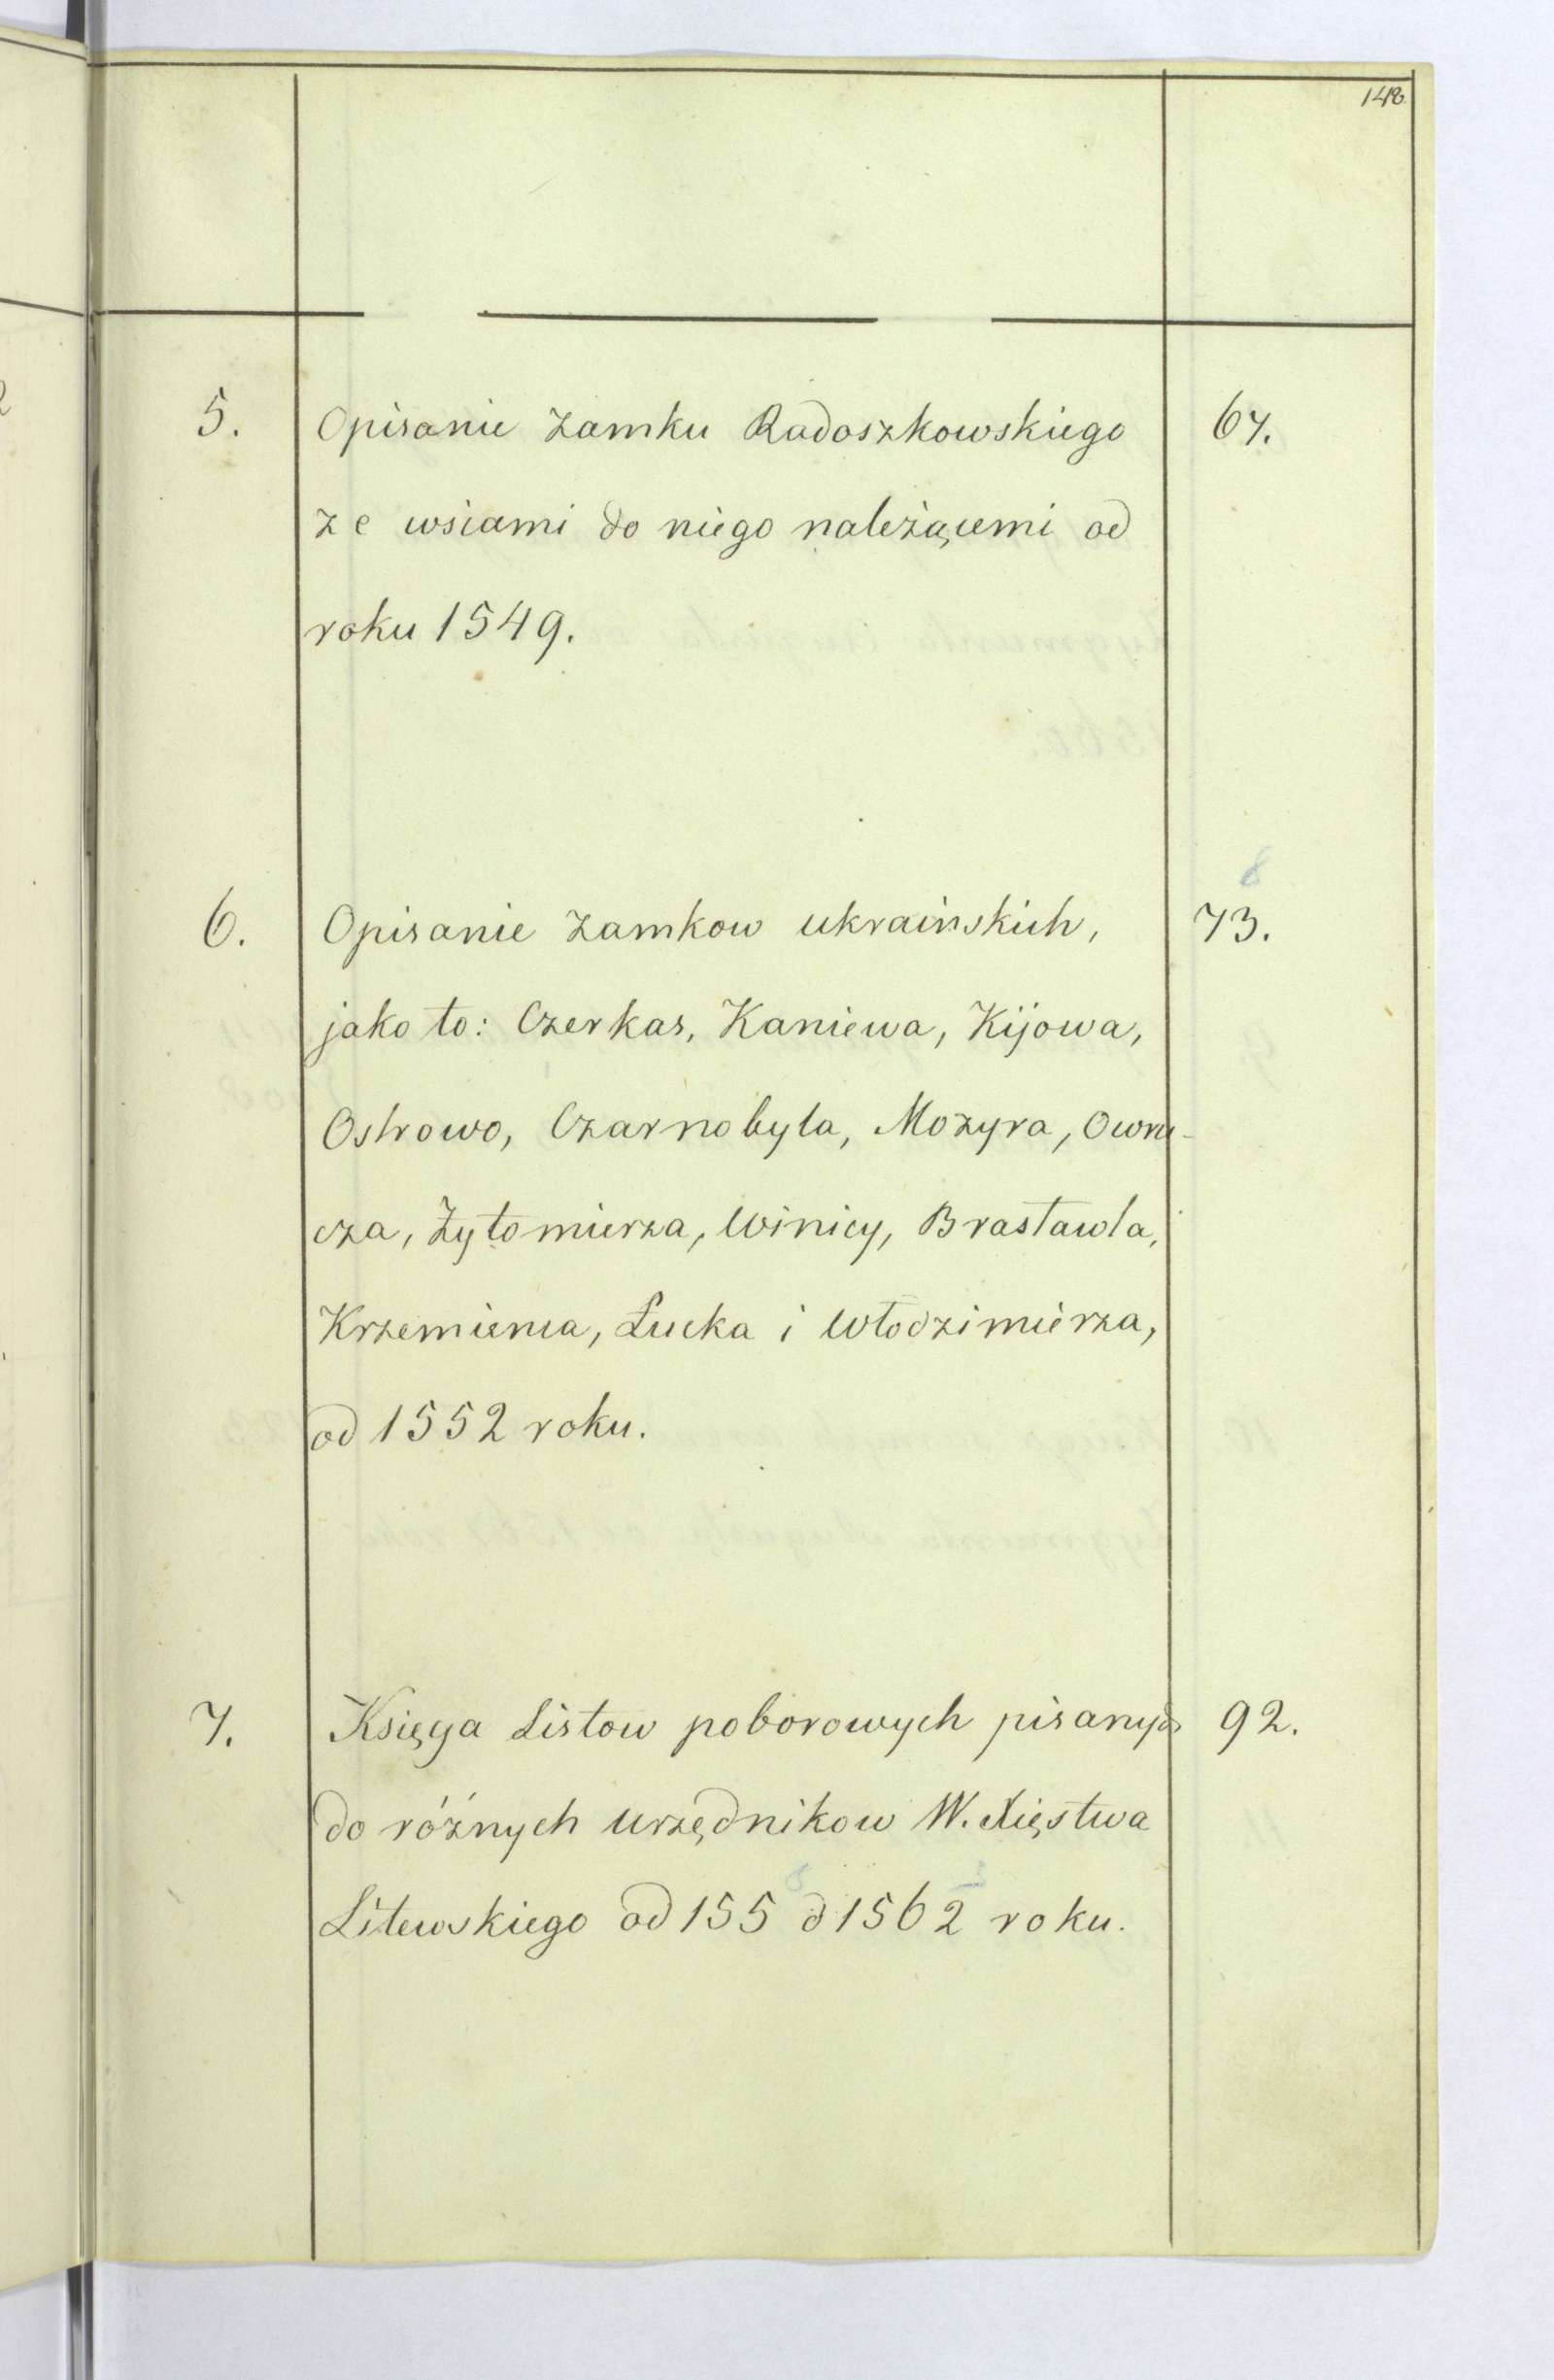 148
5. Opisanie zamku Radoszkowskiego 67.
ze wsiami do niego należącemi od
roku 1549.
8
6. Opisanie zamkow ukraińskich, 73.
jako to: Czerkas, Kaniewa, Kijowa,
Ostrowo, Czarnobyla, Mozyra, Owru-
cza, Żytomierza, Winicy, Brasławla,
Krzemieńca, Łucka i Włodzimierza,
od 1552 roku.
7. Księga Listow poborowych pisanych 92.
do różnych urzędnikow W. Xięstwa
Litewskiego od 155 d 1562 roku.